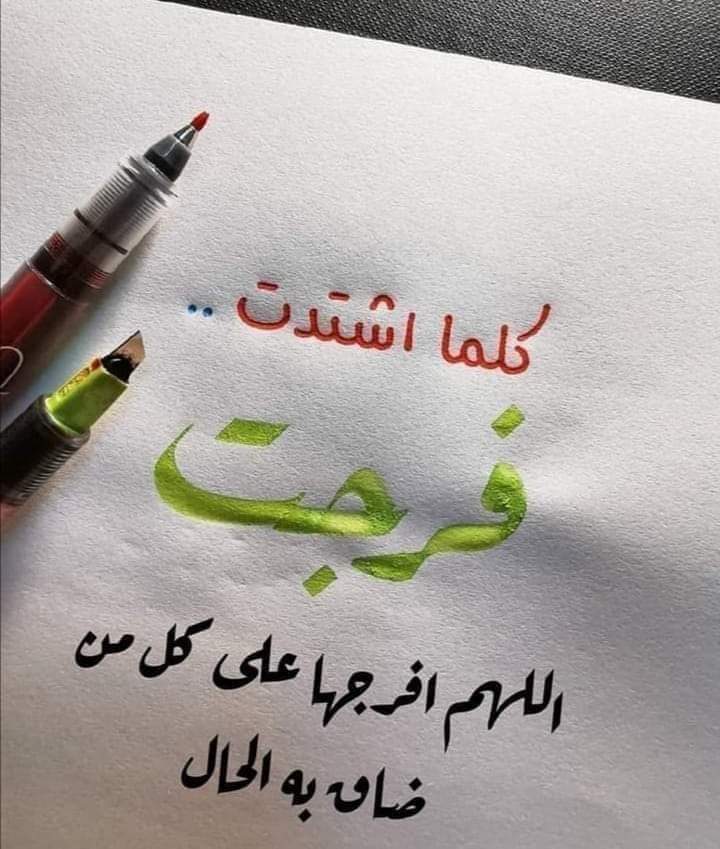 كلما اشتدت ..
فرجت
اللهم افرجها على كل من
ضاق به الحال